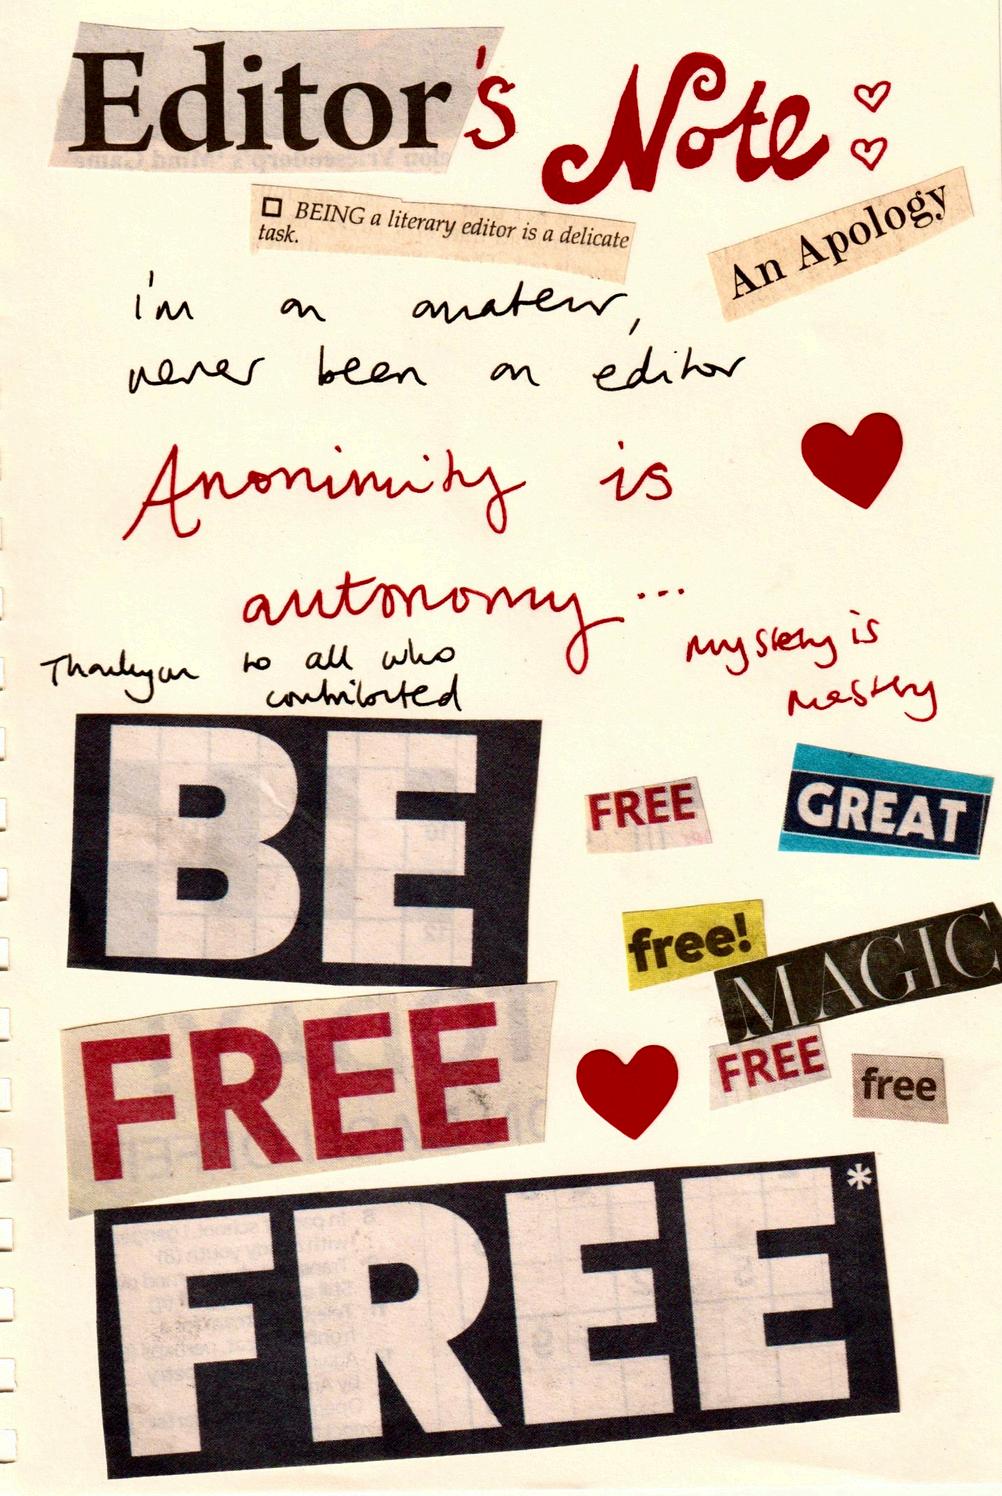 Editor's Note:
☐ BEING a literary editor is a delicate
task.
An Apology
i'm an amateur,
never been an editor
Anonimity is
autonomy...
Thankyou to all who
contributed
mystery is
mastery
BE
FREE
GREAT
free!
MAGIC
FREE
FREE
free
FREE*